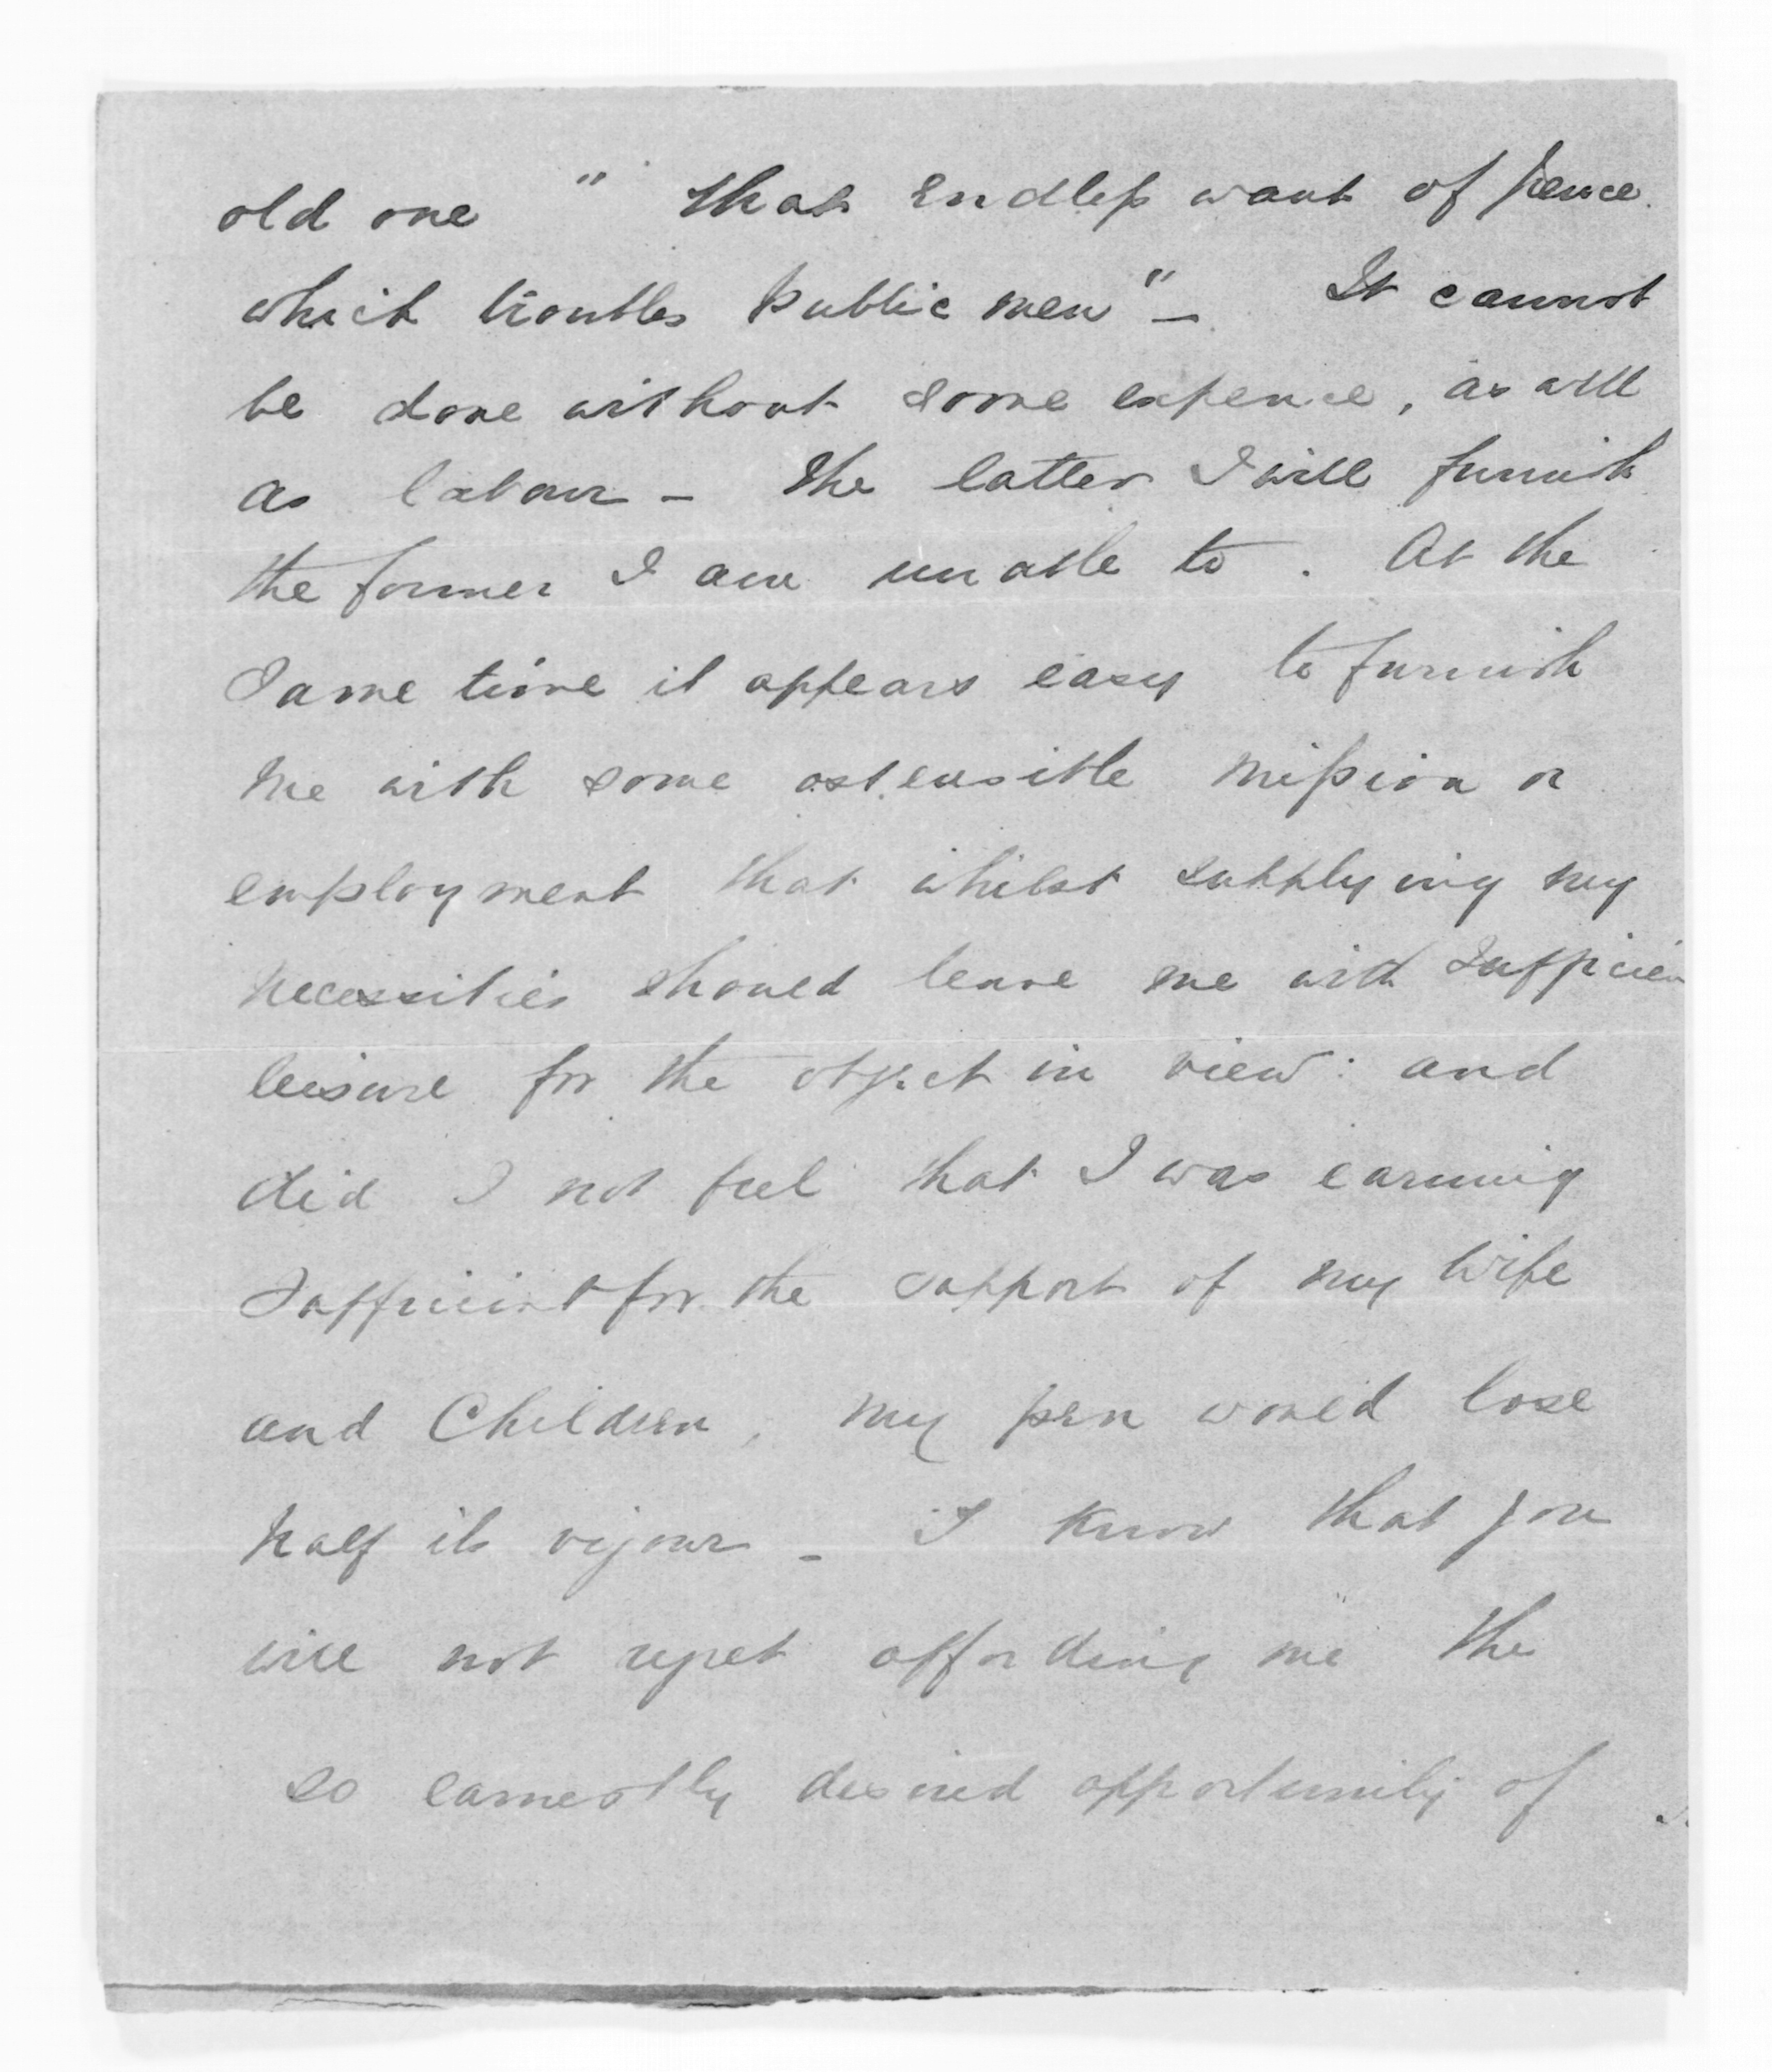 old one " that endless want of pence
which troubles public men" – It cannot
be done without some expence, as well
as labour – the latter I will furnish
the former I am unable to. At the
Same time it appears easy to furnish
me with some ostensible mission or
employment that whilst supplying my
necessities should leave me with sufficien
leisure for the object in view: and
did I not feel that I was earning
sufficient for the support of my Wife
and Children, my pen would lose
half its vigour – I know that you
will not regret affording me the
so earnestly desired opportunity of